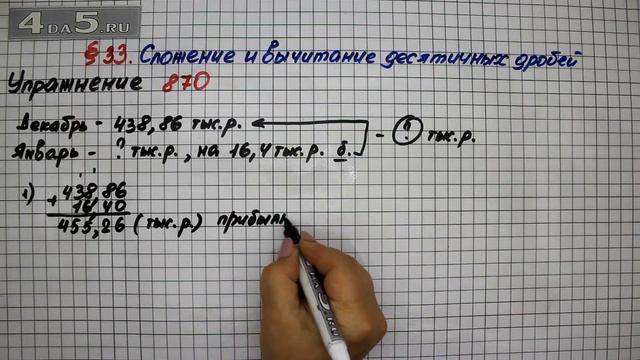 4DA5.RU
§ 33. Сложение и вычитание десятичных дробей
Упражнение 870
Декабрь - 438,86 тыс.р.
Январь - ? тыс.р., на 16,4 тыс.р. б. - ? тыс.р.
1) 438,86
+ 16,40
455,26 (тыс.р.) прибыль